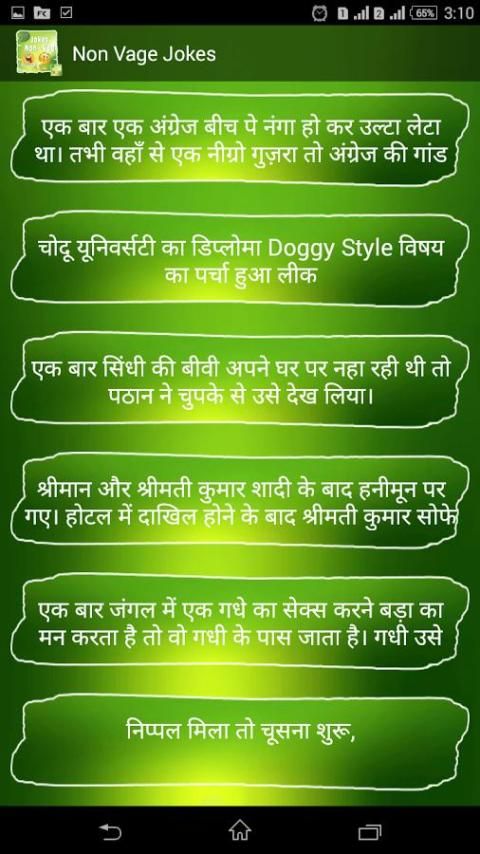 FC
1
2
65%
3:10
Jokes
Non Vage Jokes
एक बार एक अंग्रेज बीच पे नंगा हो कर उल्टा लेटा
था। तभी वहाँ से एक नीग्रो गुज़रा तो अंग्रेज की गांड
चोदू यूनिवर्सटी का डिप्लोमा Doggy Style विषय
का पर्चा हुआ लीक
एक बार सिंधी की बीवी अपने घर पर नहा रही थी तो
पठान ने चुपके से उसे देख लिया।
श्रीमान और श्रीमती कुमार शादी के बाद हनीमून पर
गए। होटल में दाखिल होने के बाद श्रीमती कुमार सोफे
एक बार जंगल में एक गधे का सेक्स करने बड़ा का
मन करता है तो वो गधी के पास जाता है। गधी उसे
निप्पल मिला तो चूसना शुरू,